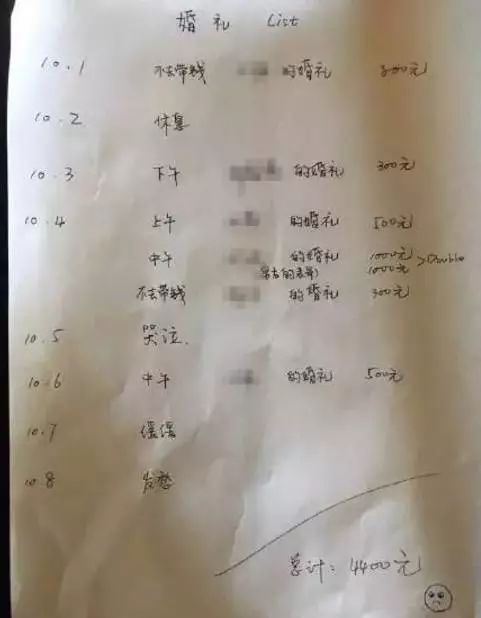 婚礼 List
10.1 不去带钱 的婚礼 800元
10.2 休息
10.3 下午 的婚礼 300元
10.4 上午 的婚礼 500元
中午 的婚礼 1000元
的表 1000元 >Double
不去带钱 的婚礼 300元
10.5 哭泣.
10.6 中午 的婚礼 500元
10.7 缓缓
10.8 发愁
总计: 4400元